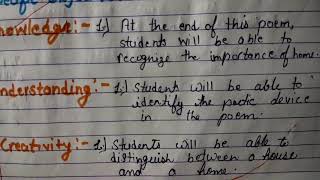 Knowledge:- 1.) At the end of this poem,
students will be able to
recognize the importance of home.
Understanding:- 1.) Students will be able to
identify the poetic device
in the poem.
Creativity:- 1.) Students will be able to
distinguish between a house
and a home.